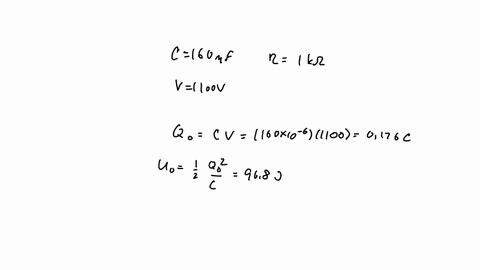 C = 160 μF R = 1 kΩ
V = 1100V
Q₀ = C V = (160×10⁻⁶)(1100) = 0,176 C
U₀ = 1/2 Q₀²/C = 96.8 J